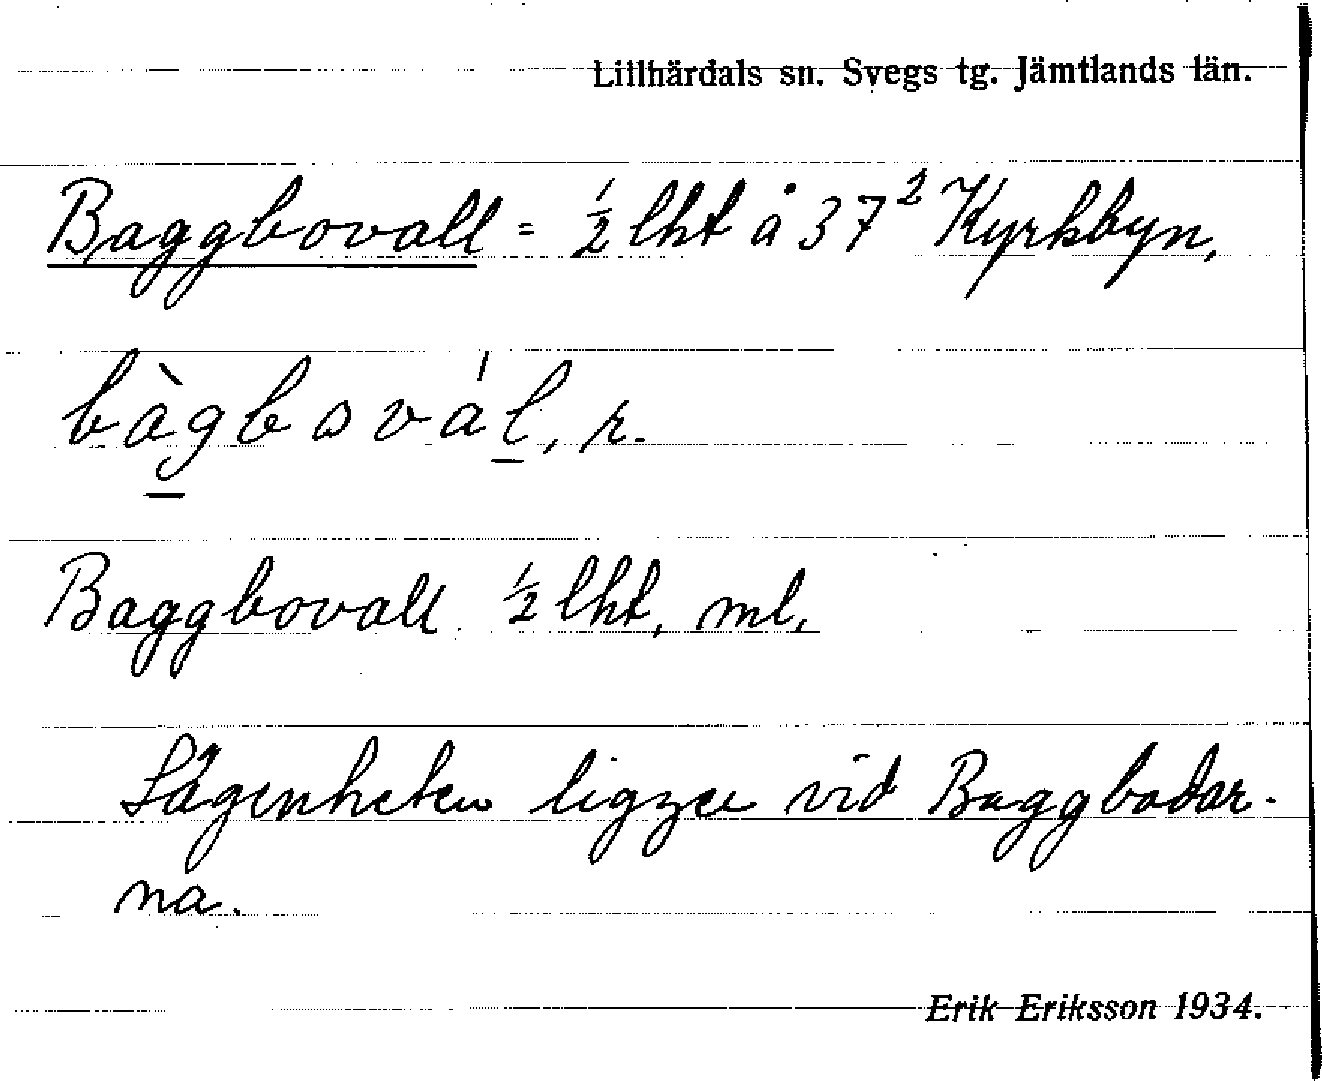 Lillhärdals sn. Svegs tg. Jämtlands län.
Baggbovall = ½ lht å 37² Kyrkbyn,
bàgbovál, r.
Baggbovall ½ lht, ml,
Lägenheten ligger vid Baggbodar-
na.
Erik Eriksson 1934.